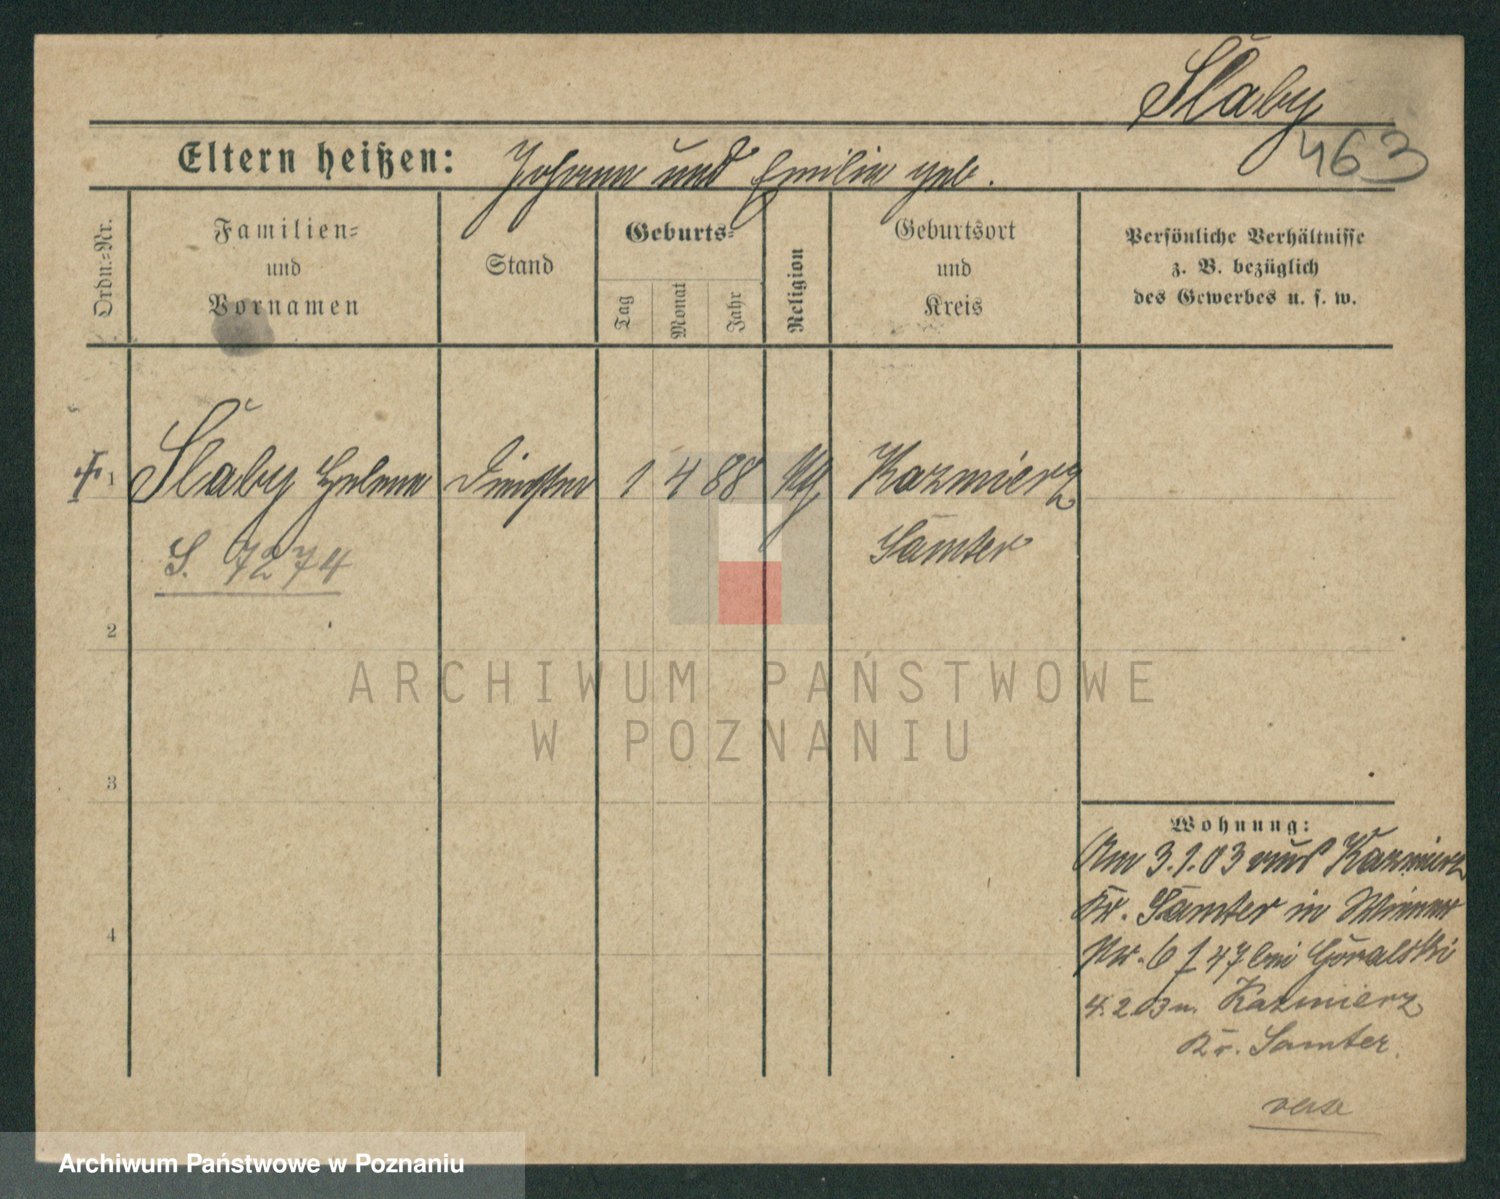 Slaby
463
Eltern heißen: Johann und Emilie geb.
Ordn.-Nr.
Familien- und Vornamen
Stand
Geburts-
Tag
Monat
Jahr
Religion
Geburtsort und Kreis
Persönliche Verhältnisse
z. B. bezüglich
des Gewerbes u. s. w.
1 Slaby Helene 1 4 88 Kazmierz
Samter
S. 7274
2
3
4
Wohnung:
Am 3.1.03 aus Kazmierz
Kr. Samter in
Nr. 6 f 47 bei Góralski
4.2.03 n. Kazmierz
Kr. Samter.
ARCHIWUM PAŃSTWOWE
W POZNANIU
Archiwum Państwowe w Poznaniu